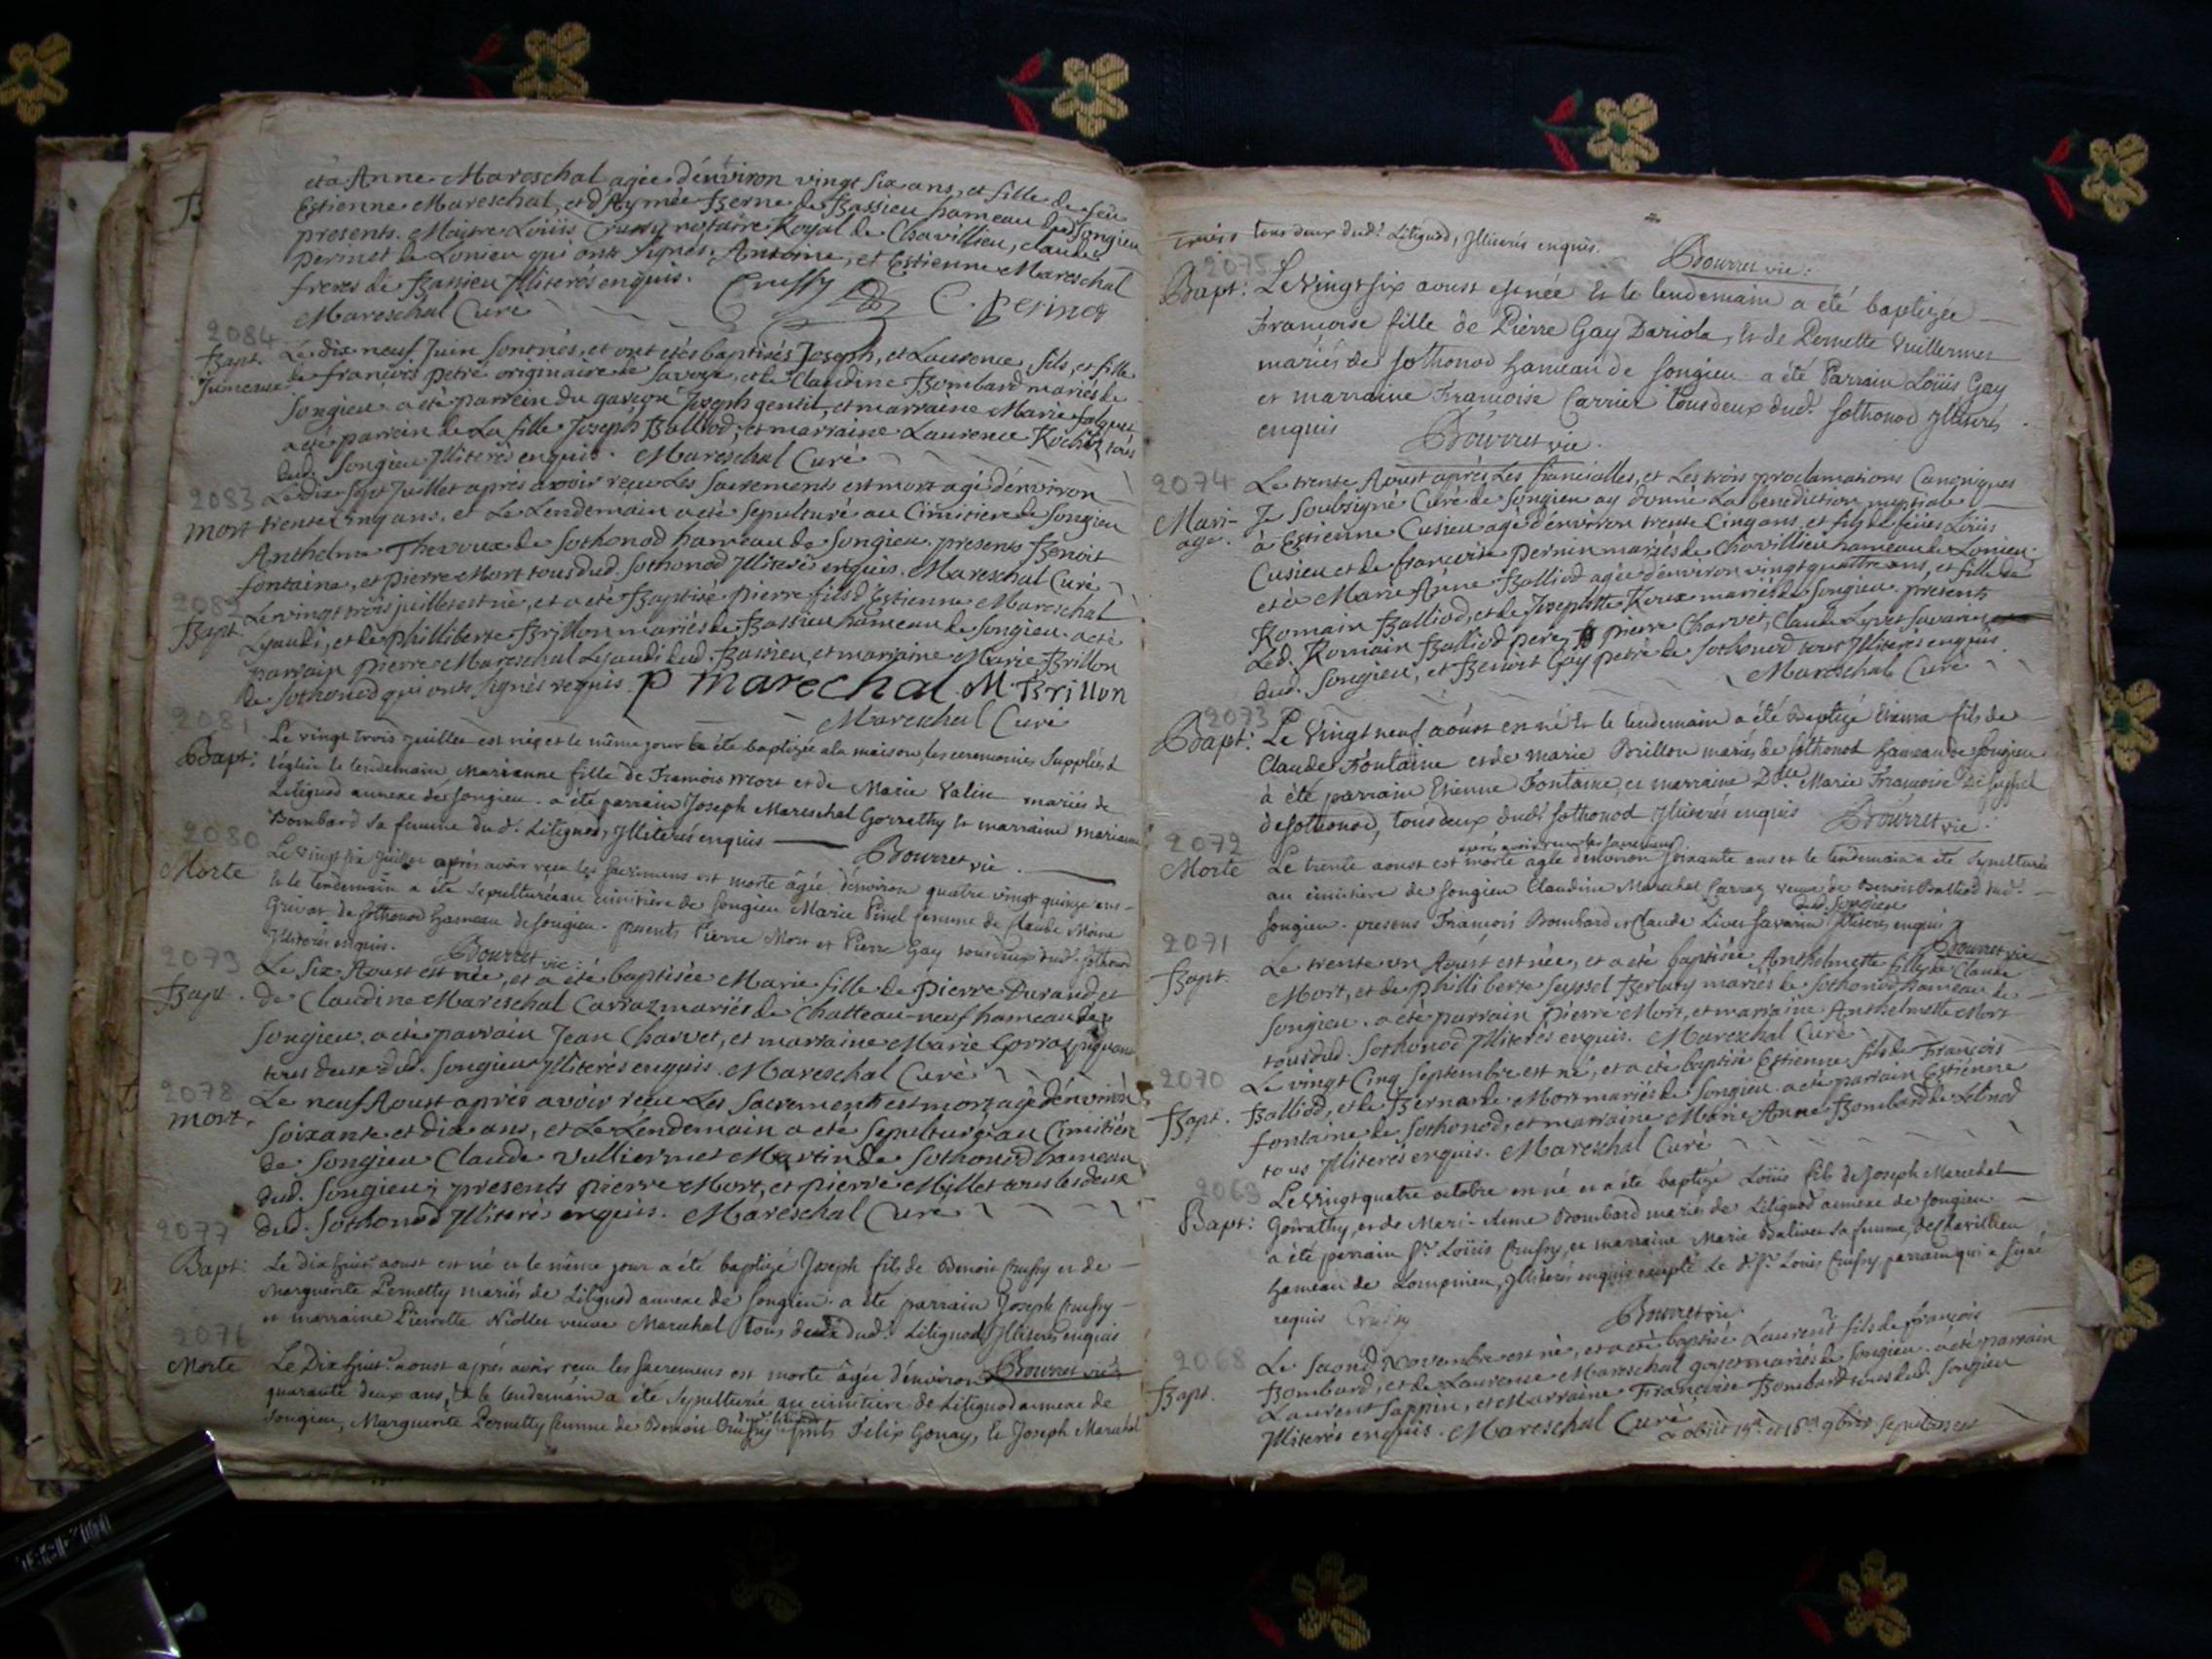 et à Anne Mareschal agée d'énviron vingt six ans, et fille de feu
Estienne Mareschal, et d'Aymée Berne de Bassieu hameau dud. Songieu
presents. Maitre Loüis Crussy notaire Royal de Chavillieu, claude
permet de Lonieu qui ont signés. Antoine, et Estienne Mareschal
freres de Bassieu Illiterés enquis. Crussy C. perinet
Mareschal Curé
2084
Bapt. Jumeaux
Le dix neuf Juin sont nés, et ont etés baptisés Joseph, et Laurence, fils, et fille
de françois petré originaire de Savoye, et de Claudine Bombard mariés de
Songieu a eté parrein du garçon Joseph gentil, et marraine Marie falquet
a eté parrein de La fille Joseph Balliod, et marraine Laurence Rochex tous
dud. Songieu Illiterés enquis. Mareschal Curé
2083
mort
Le dix sept Juillet aprés avoir reçu Les sacrements est mort agé d'énviron
trente cinq ans, et Le Lendemain a eté sepulturé au Cimitiere de Songieu
Anthelme Thevoux de Sothonod hameau de Songieu. presents Benoit
fontaine, et pierre Mort tous dud. Sothonod Illiterés enquis. Mareschal Curé
2082
Bapt.
Le vingt trois juillet est né, et a eté Baptisé pierre fils d'Estienne Mareschal
Lyaudi, et de philliberte Brillon mariés de Bassieu hameau de Songieu. a eté
parrain pierre Mareschal Lyaudi dud. Bassieu, et marraine Marie Brillon
de Sothonod qui ont signés requis. P marechal. M. Brillon
Mareschal Curé
2081
Bapt:
Le vingt trois juillet est née et le même jour a été baptizée a la maison, les ceremonies suppliés à
l'église le lendemain Marianne fille de François Mort et de Marie Valin mariés de
Litignod annexe de Songieu. a été parrain Joseph Mareschal Gorrathy et marraine mariane
Bombard sa femme dud. Litignod, Illiterés enquis
Bourret vic.
2080
Morte
Le vingt six juillet aprés avoir reçu les sacremens est morte âgée d'énviron quatre vingt quinze ans
et le lendemain a été sepulturée au cimitière de Songieu Marie Pinel femme de Claude Moine
Grivat de Sothonod hameau de Songieu. presents Pierre Mort et Pierre Gay tous deux dud. Sothonod
Illiterés enquis. Bourret vic:
2079
Bapt.
Le six Aoust est née, et a eté baptisée Marie fille de pierre Durand et
de Claudine Mareschal Carraz mariés de Chatteau-neuf hameau de
Songieu. a eté parrain Jean Charvet, et marraine Marie Gorraz
tous deux dud. Songieu Illiterés enquis. Mareschal Curé
2078
mort.
Le neuf Aoust aprés avoir reçu Les sacrements est mort agé d'énviron
soixante et dix ans, et Le Lendemain a eté sepulturé au Cimitiére
de Songieu Claude Vulliermet Martin de Sothonod hameau
dud. Songieu; presents pierre Mort, et pierre Millet tous les deux
dud. Sothonod Illiterés enquis. Mareschal Curé
2077
Bapt:
Le dix huit aoust est né et le même jour a été baptizé Joseph fils de Benoit Crussy et de
Marguerite Pernetty mariés de Litignod annexe de Songieu. a été parrain Joseph Crussy
et marraine Pierrette Niollet veuve Mareschal tous deux dud: Litignod Illiterés enquis
Bourret vic.
2076
Morte
Le Dix huit aoust aprés avoir reçu les sacremens est morte âgée d'énviron
quarante deux ans, et le lendemain a été sepulturée au cimitiere de Litignod annexe de
Songieu, Marguerite Pernetty femme de Benoit Crussy dud. Litignod psnts Felix Gonay, et Joseph Mareschal
tous deux dud: Litignod, Illiterés enquis.
Bourret vic:
2075
Bapt:
Le Vingt six aoust est née et le lendemain a été baptizée
Françoise fille de Pierre Gay Dariola, et de Pernette Vuillermet
mariés de Sothonod hameau de Songieu a été Parrain Loüis Gay
et marraine Françoise Carrier tous deux dud: Sothonod Illiterés
enquis Bourret vic.
2074
Mari-
age.
Le trente Aoust aprés Les fiancialles, et Les trois proclamations Canoniques
Je soubsigné Curé de Songieu ay donné La benediction nuptiale
à Estienne Cusieu agé d'énviron trente Cinq ans, et fils de feües Loüis
Cusieu et de françoise pernin mariés de Chavillieu hameau de Lonieu
et à Marie Anne Balliod agée d'énviron vingt quattre ans, et fille de
Romain Balliod, et de Josephtte Roux mariés de Songieu. presents
Led. Romain Balliod pere, pierre Charvet, Claude Lyvet Savarin
dud. Songieu, et Benoit Gay petré de Sothonod tous Illiterés enquis
Mareschal Curé
2073
Bapt:
Le Vingt neuf aoust est né et le lendemain a été Baptizé Etienne fils de
Claude Fontaine et de marie Brillon mariés de Sothonod hameau de Songieu
à été parrain Etienne Fontaine, et marraine Dlle Marie Françoise De Seyssel
de Sothonod, tous deux dud: Sothonod Illiterés enquis Bourret vic.
2072
Morte
aprés avoir reçu les sacremens
Le trente aoust est morte agée d'énviron soixante ans et le lendemain a été sepulturée
au cimitiere de Songieu Claudine Mareschal Carraz veuve de Benoit Balliod dud:
Songieu. presens François Bombard et Claude Livet Savarin dud. Songieu Illiterés enquis
Bourret vic
2071
Bapt.
Le trente un Aoust est née, et a eté baptisée Anthelmette fille de Claude
Mort, et de philliberte Seyssel Berlaty mariés de Sothonod hameau de
Songieu. a eté parrain pierre Mort, et marraine Anthelmette Mort
tous dud. Sothonod Illiterés enquis. Mareschal Curé
2070
Bapt.
Le vingt Cinq Septembre est né, et a eté baptisé Estienne fils de François
Balliod, et de Bernarde Mort mariés de Songieu. a eté parrain Estienne
fontaine de Sothonod, et marraine Marie Anne Bombard de Litinod
tous Illiterés enquis. Mareschal Curé
2069
Bapt:
Le Vingt quatre octobre est né et a été baptizé Loüis fils de Joseph Mareschal
Gorrathy, et de Marie-Anne Bombard mariés de Litignod annexe de Songieu
a été parrain Sr Loüis Crussy, et marraine Marie Balivet sa femme, de Chavillieu
hameau de Lompnieu, Illiterés enquis excepté Le d. Sr Louis Crussy parrain qui a signé
requis Crussy
Bourret vic.
2068
Bapt.
Le second Novembre est né, et a eté baptisé Laurent fils de françois
Bombard, et de Laurence Mareschal goyet mariés de Songieu. a eté parrain
Laurent Sappin, et Marraine Françoise Bombard tous dud. Songieu
Illiterés enquis. Mareschal Curé